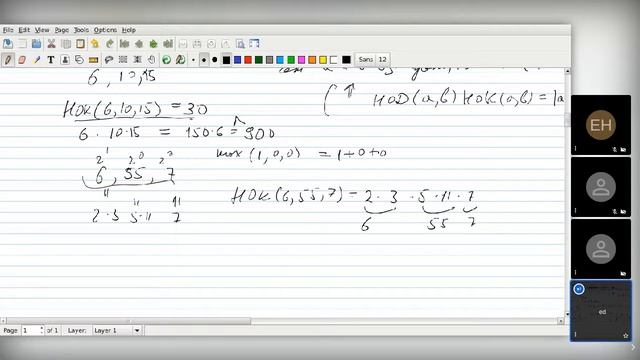 File Edit View Page Tools Options Help
Sans 12
6, 10, 15
НОК(6,10,15) = 30
НОД(a,b) НОК(a,b) = |a
6 · 10 · 15 = 150 · 6 = 900
max (1, 0, 0) = 1+0+0
2^1 2^0 2^0
6, 55, 7
НОК(6, 55, 7) = 2 · 3 · 5 · 11 · 7
2·3 5·11 7
6 55 7
EH
ed
Page 1 of 1 Layer: Layer 1